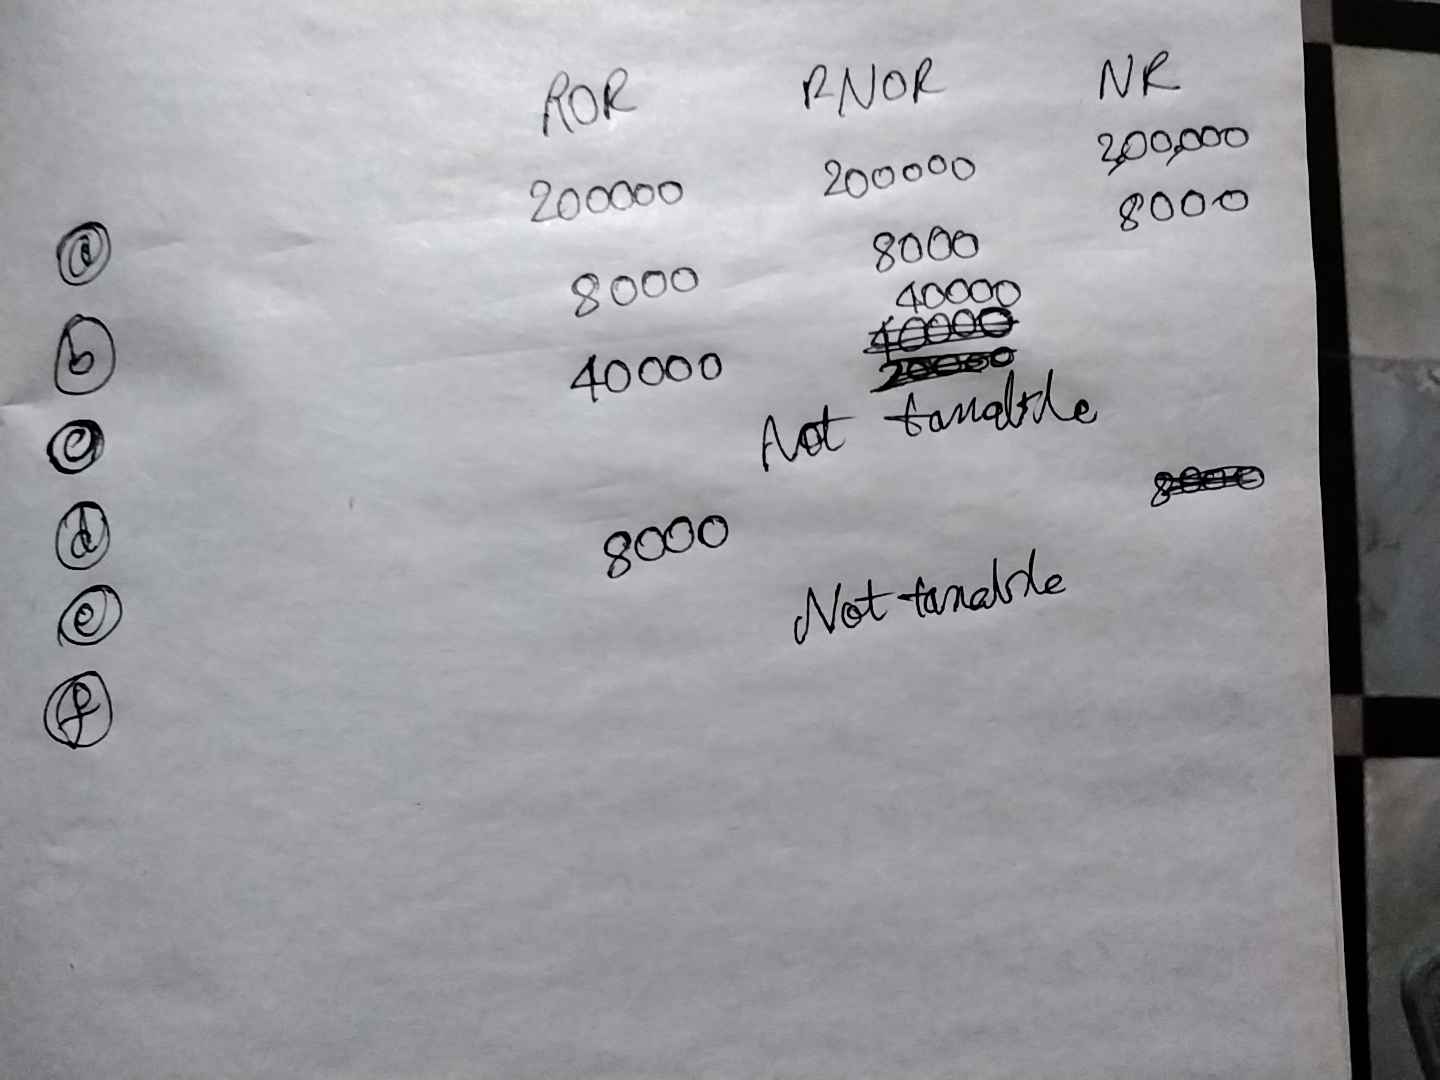 ROR RNOR NR
200000 200000 200,000
(a) 8000 8000 8000
(b) 40000 40000
40000
20000
(c) Not taxable
(d) 8000 8000
(e) Not taxable
(f)